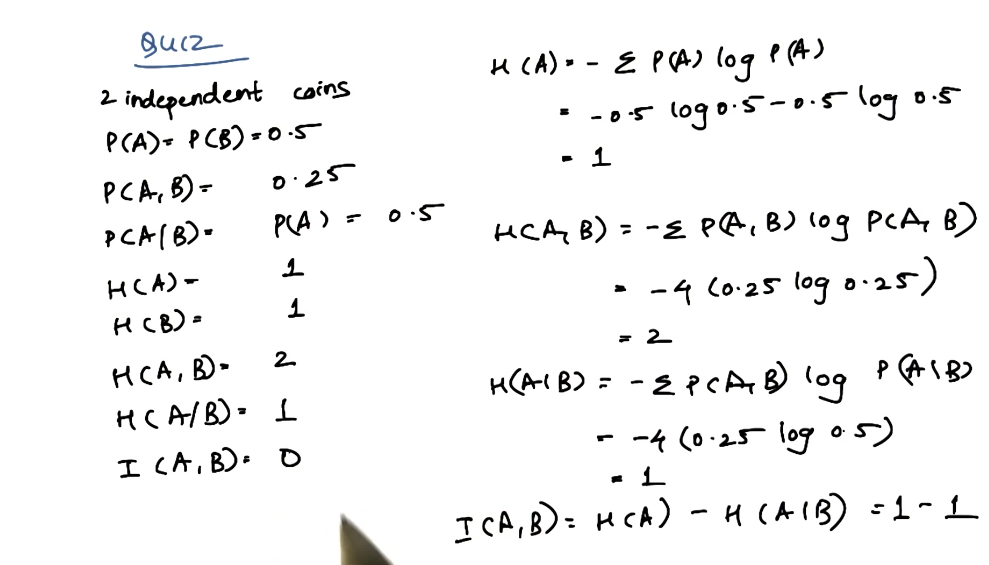 QUIZ
2 independent coins
P(A)= P(B)=0.5
P(A,B)= 0.25
P(A/B)= P(A) = 0.5
H(A)= 1
H(B)= 1
H(A,B)= 2
H(A/B)= 1
I(A,B)= 0
H(A)= - Σ P(A) log P(A)
= -0.5 log 0.5 - 0.5 log 0.5
= 1
H(A,B) = -Σ P(A,B) log P(A,B)
= -4 (0.25 log 0.25)
= 2
H(A|B) = -Σ P(A,B) log P(A|B)
= -4 (0.25 log 0.5)
= 1
I(A,B)= H(A) - H(A|B) = 1 - 1